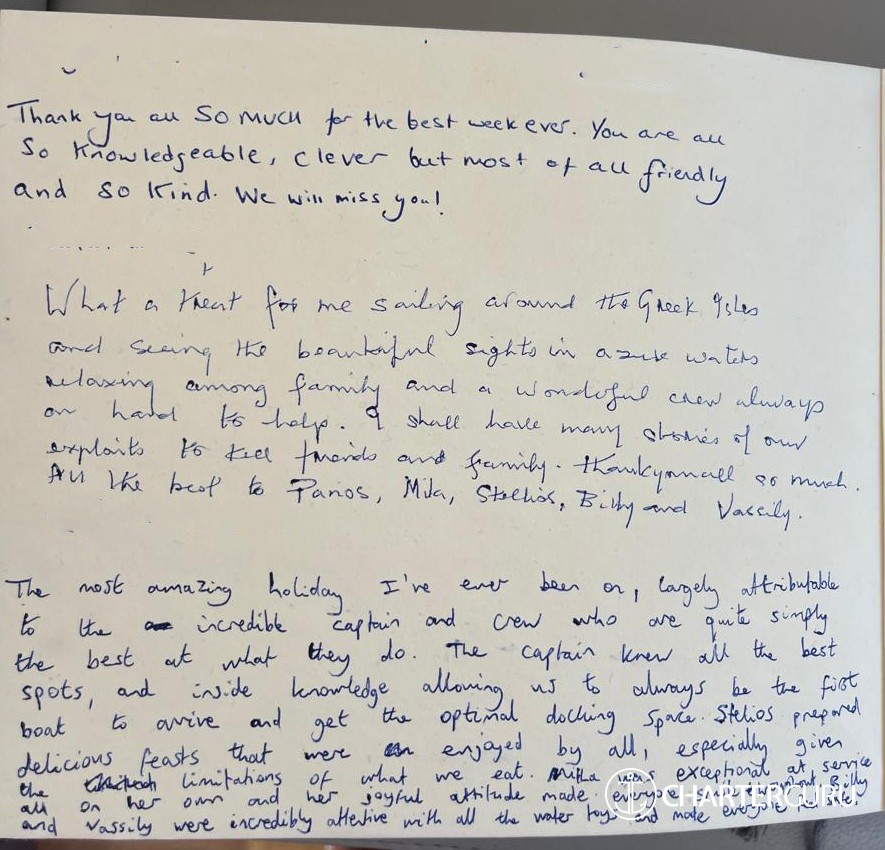 Thank you all SO MUCH for the best week ever. You are all
So Knowledgeable, clever but most of all friendly
and so Kind. We will miss you!
What a treat for me sailing around the Greek Isles
and seeing the beautiful sights in azure waters
relaxing among family and a wonderful crew always
on hand to help. I shall have many stories of our
exploits to tell friends and family. thankyou all so much.
All the best to Panos, Mila, Stellios, Billy and Vassily.
The most amazing holiday I've ever been on, largely attributable
to the incredible captain and crew who are quite simply
the best at what they do. The captain knew all the best
spots, and inside knowledge allowing us to always be the first
boat to arrive and get the optimal docking space. Stelios prepared
delicious feasts that were enjoyed by all, especially given
the limitations of what we eat. Milla was exceptional at service
all on her own and her joyful attitude made everyone Billy
and Vassily were incredibly attentive with all the water toys and made everyone feel safe!
CHARTERGURU